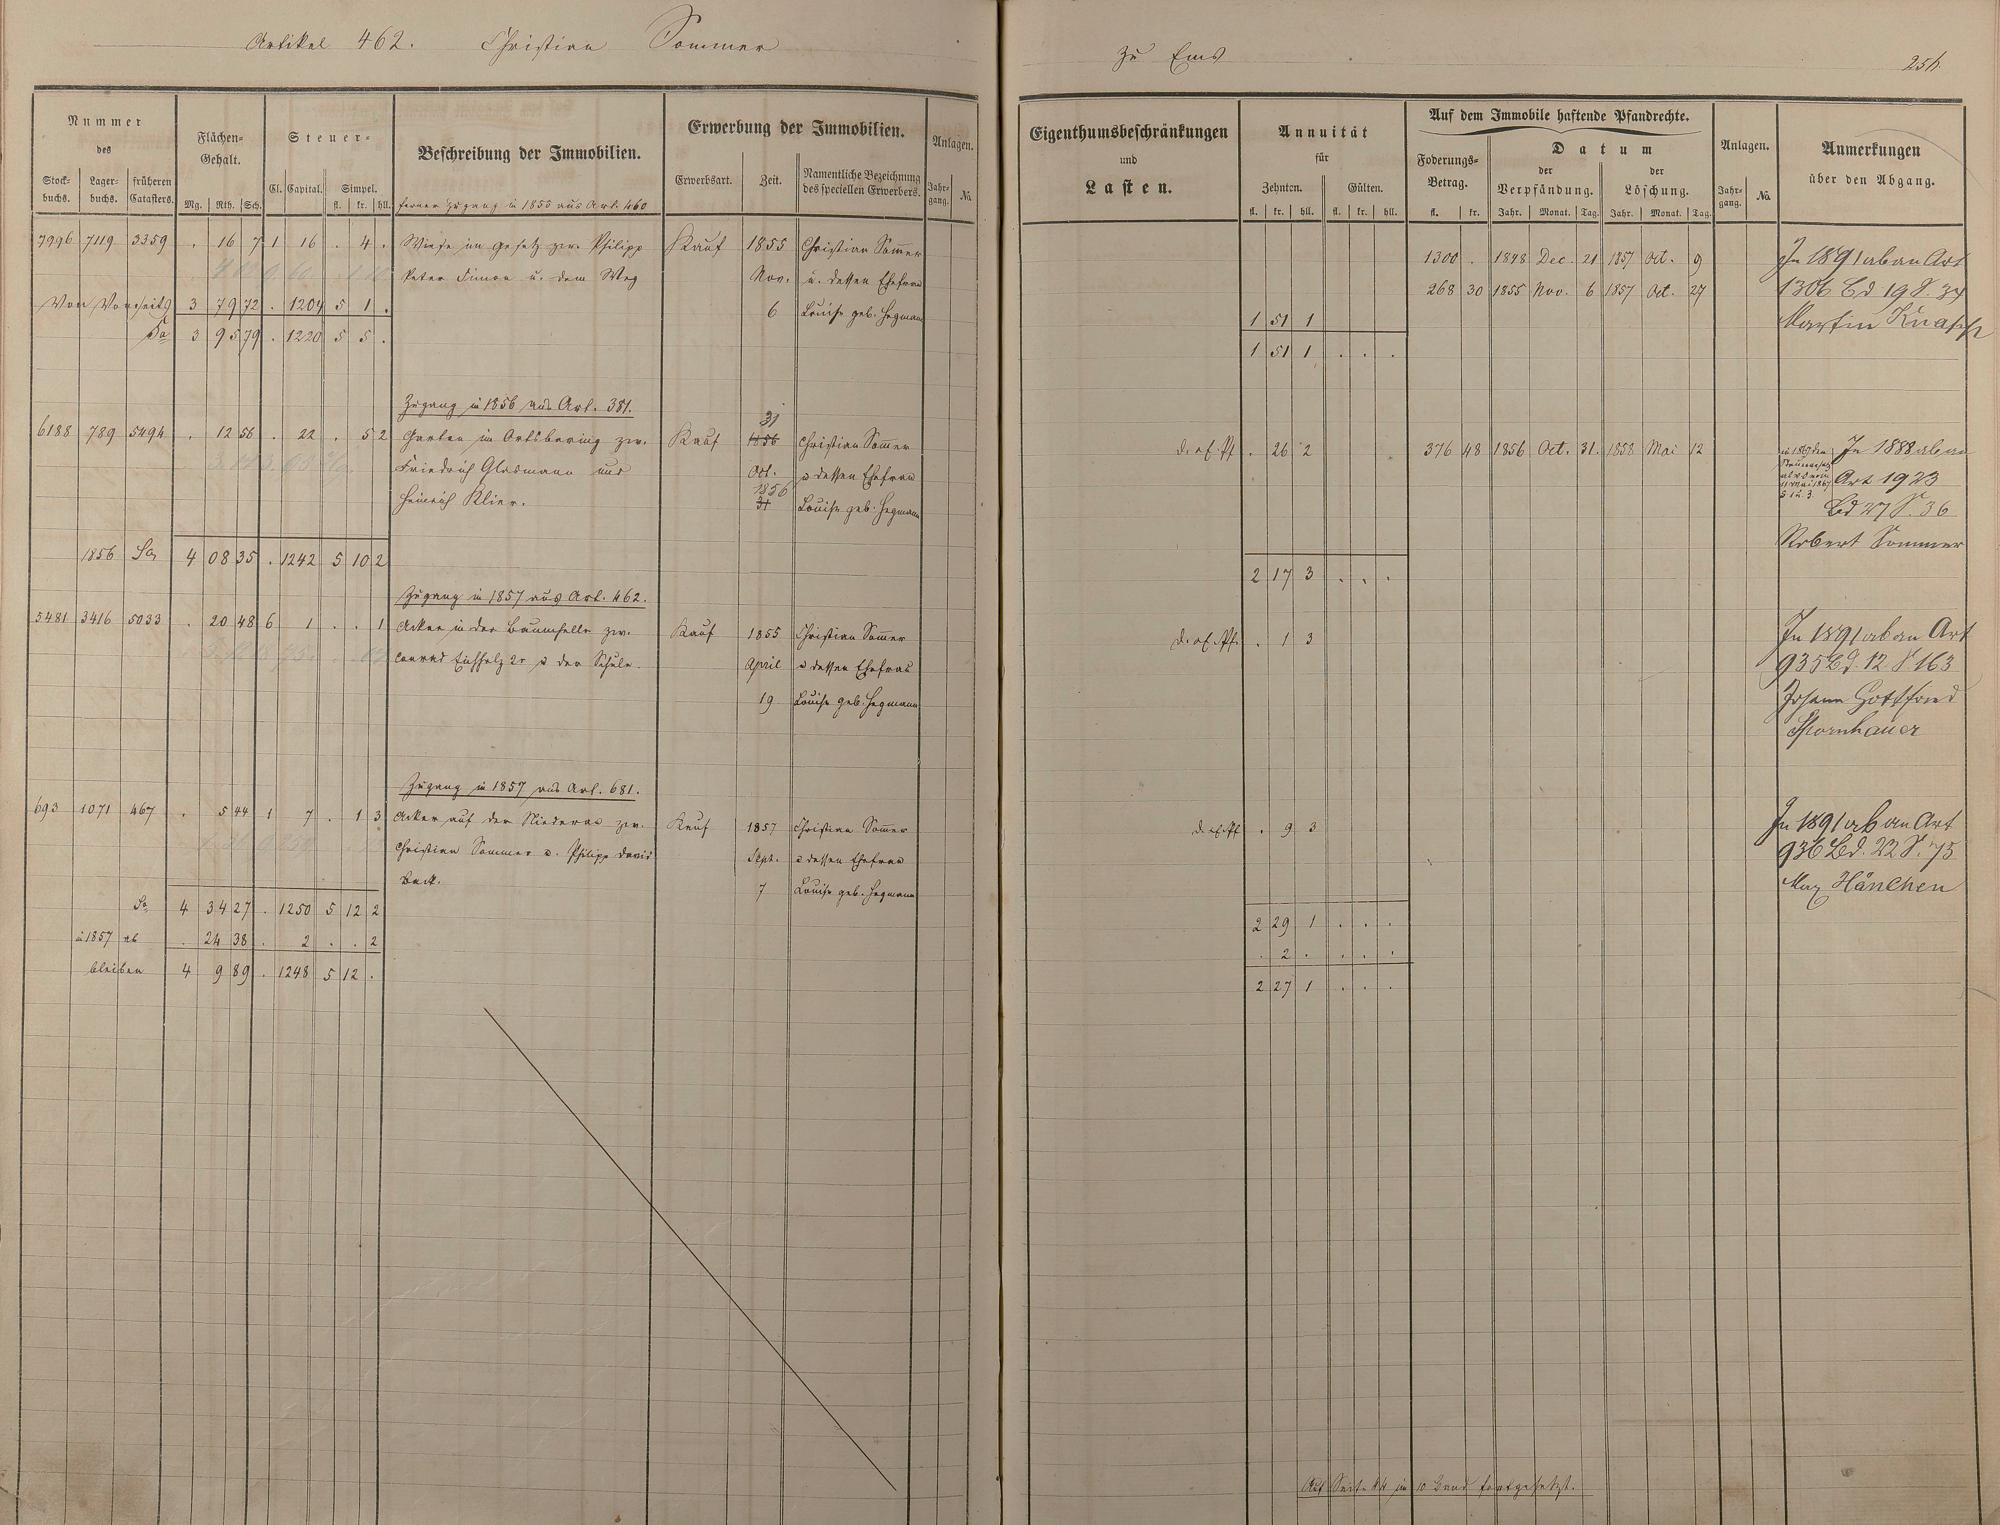 Artikel 462. Christian Sommer
zu Ems
Nummer
des
Stock-
buchs.
Lager-
buchs.
früheren
Catasters.
Flächen-
Gehalt.
Mg. Rth. Sch.
Steuer-
Cl. Capital. Simpel.
fl. kr. hll.
Beschreibung der Immobilien.
ferner Zugang in 1855 aus Art. 460
Erwerbung der Immobilien.
Erwerbsart. Zeit.
Namentliche Bezeichnung
des speciellen Erwerbers.
Anlagen.
Jahr-
gang. No.
7996 7119 3359 . 16 7 1 16 . 4 . Wiese im Gesetz zw. Philipp Kauf 1855 Christian Sommer
Peter Simon u. dem Weg Nov. u. dessen Ehefrau
Von Vorseits 3 79 72 . 1204 5 1 . 6 Louise geb. Hegmann
Sa 3 95 79 . 1220 5 5 .
Zugang in 1856 aus Art. 381.
31
6188 789 5494 . 12 56 . 22 . 5 2 Garten im Ortsbering zw. Kauf 1856 Christian Sommer
Friedrich Glasmann und Oct. u dessen Ehefrau
1856
Heinrich Klier. 31 Louise geb. Hegmann
1856 Sa 4 08 35 . 1242 5 10 2
Zugang in 1857 aus Art. 462.
5481 3416 5033 . 20 48 6 1 . . 1 Acker in der Baumhelle zw. Kauf 1855 Christian Sommer
Conrad Eichholz 2r u der Schule. April u dessen Ehefrau
19 Louise geb. Hegmann
Zugang in 1857 aus Art. 681.
693 1071 467 . 5 44 1 7 . 1 3 Acker auf der Niederau zw. Kauf 1857 Christian Sommer
Christian Sommer u. Philipp David Sept. u dessen Ehefrau
Beck. 7 Louise geb. Hegmann
Sa 4 34 27 . 1250 5 12 2
in 1857 ab . 24 38 . 2 . . 2
bleiben 4 9 89 . 1248 5 12 .
Eigenthumsbeschränkungen
und
Lasten.
Annuität
für
Zehnten. Gülten.
fl. kr. hll. fl. kr. hll.
Auf dem Immobile haftende Pfandrechte.
Foderungs-
Betrag.
fl. kr.
Datum
der
Verpfändung.
Jahr. Monat. Tag.
der
Löschung.
Jahr. Monat. Tag.
Anlagen.
Jahr-
gang. No.
Anmerkungen
über den Abgang.
1300 . 1848 Dec. 21 1857 Oct. 9
268 30 1855 Nov. 6 1857 Oct. 27
1 51 1
1 51 1 . . .
In 1891 ab an Art
1306 Bd 19 S. 34
Martin Knapp
d. af. Pf. . 26 2 376 48 1856 Oct. 31. 1858 Mai 12
In 1888 ab an
Art 1923
Bd 27 S. 36
Robert Sommer
2 17 3 . . .
d. af. Pf. . 1 3
In 1891 ab an Art
935 Bd. 12 S. 163
Johann Gottfried
Spornhauer
d. af. Pf. . 9 3
In 1891 ab an Art
936 Bd. 22 S. 75
Max Hänchen
2 29 1 . . .
. 2 . . . .
2 27 1 . . .